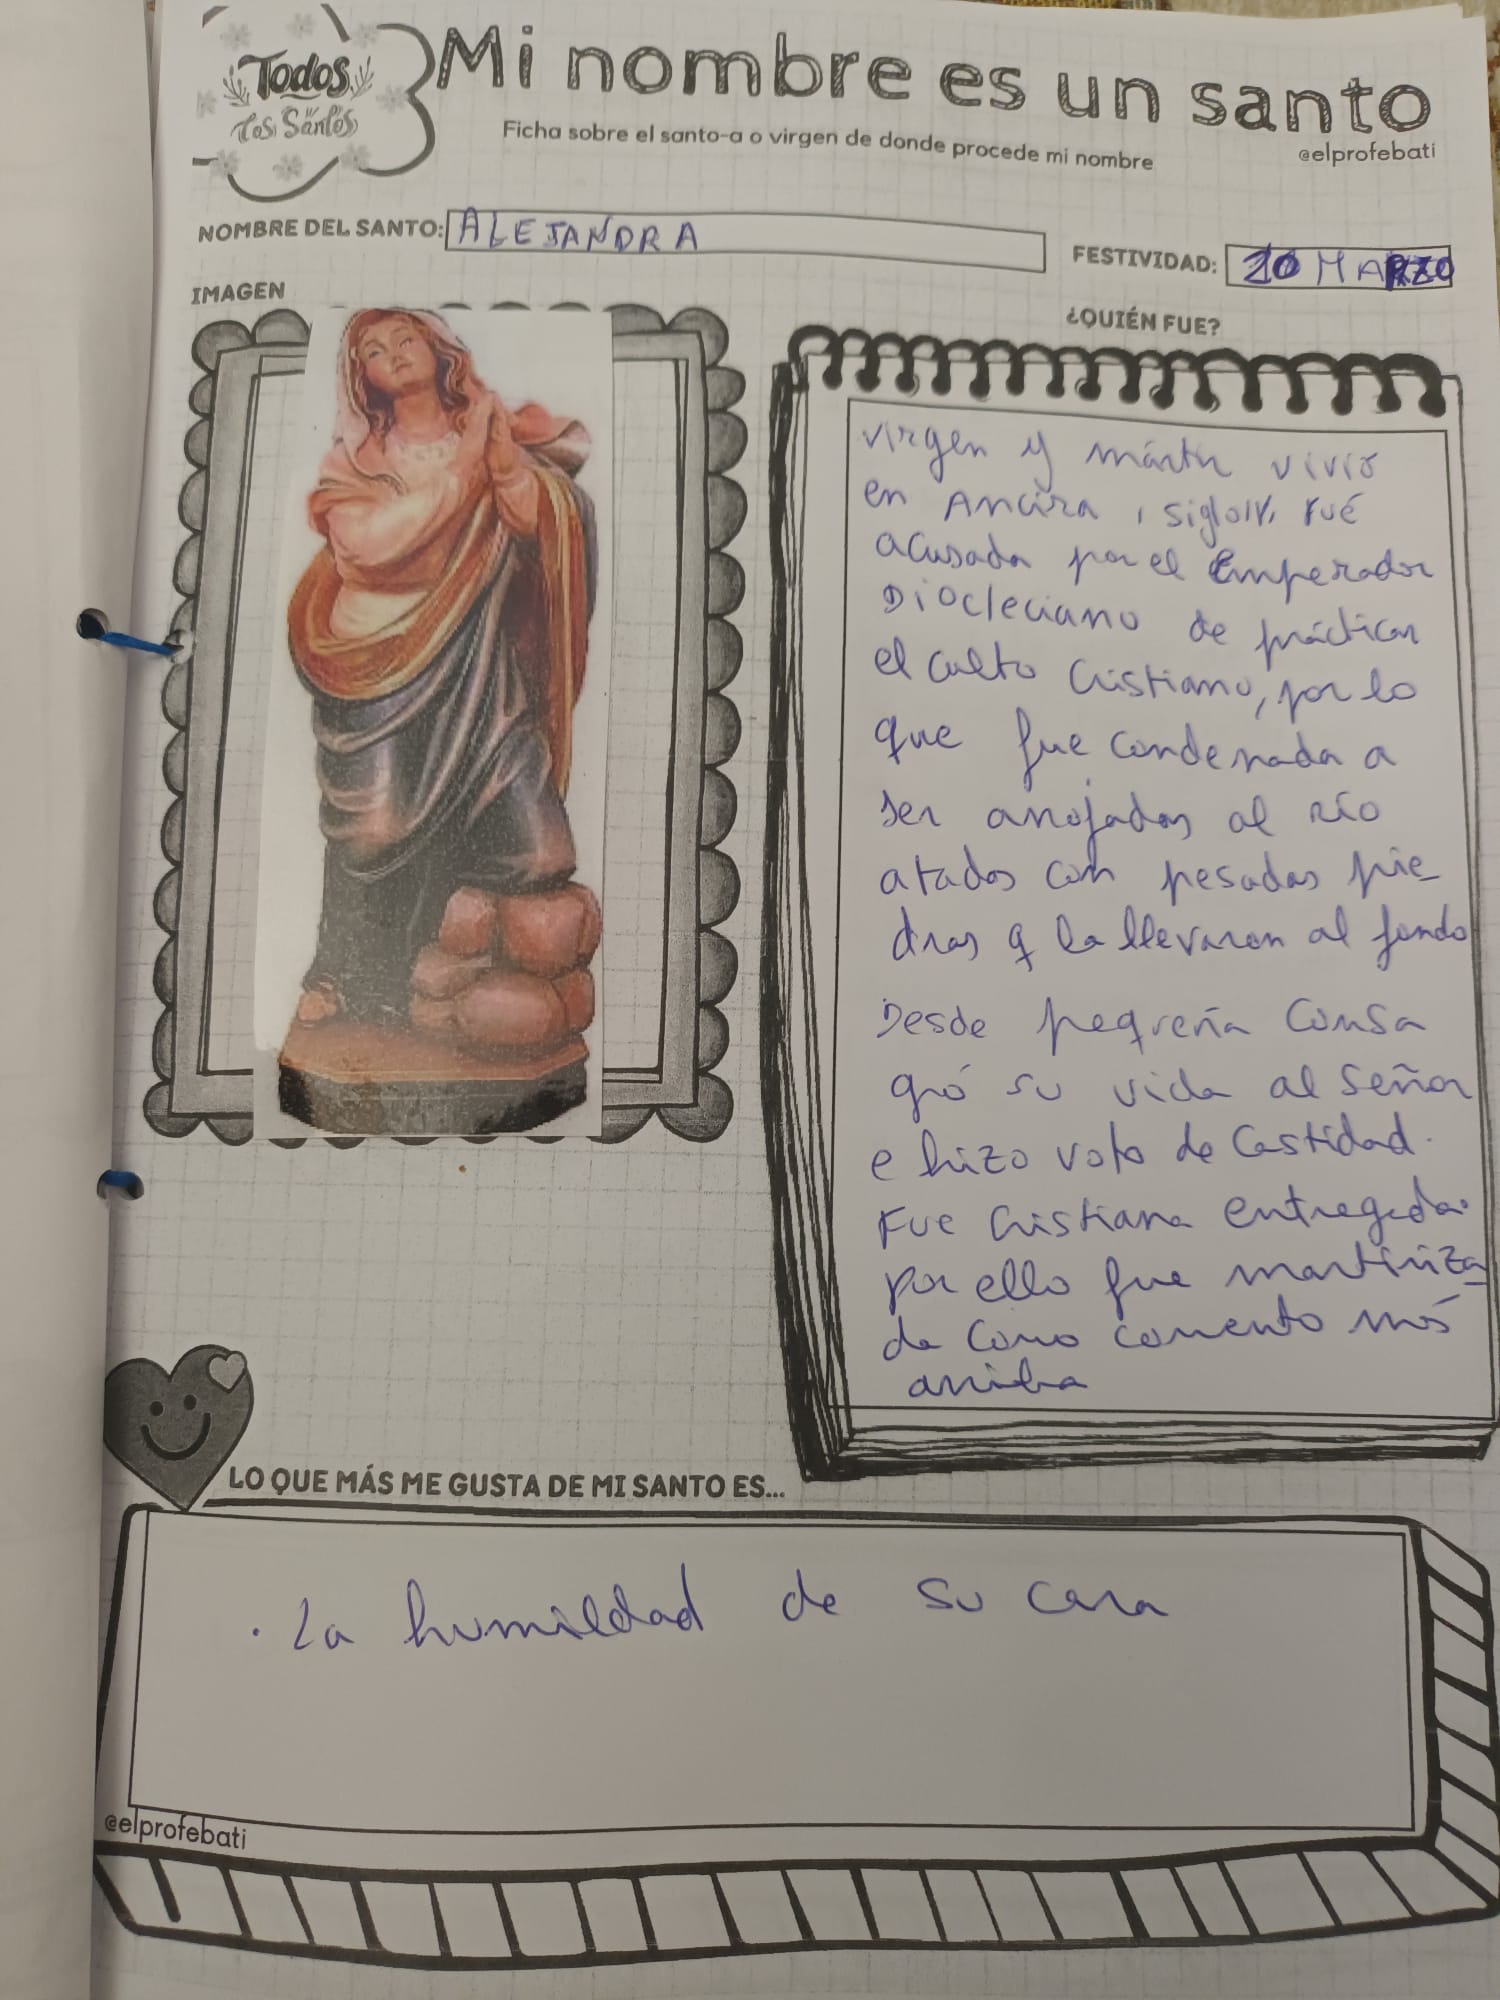 Todos
los Santos
Mi nombre es un santo
Ficha sobre el santo-a o virgen de donde procede mi nombre
@elprofebati
NOMBRE DEL SANTO: ALEJANDRA
FESTIVIDAD: 20 MARZO
IMAGEN
¿QUIÉN FUE?
virgen y mártir vivió
en Ancira, siglo IV, Fué
acusada por el Emperador
Diocleciano de prácticar
el culto Cristiano, por lo
que fue condenada a
ser arrojadas al río
atadas con pesadas pie_
dras q la llevaron al fondo
Desde pequeña Consa
gró su vida al Señor
e hizo voto de Castidad.
Fue Cristiana entregada.
por ello fue martiriza
da como comento más
arriba
LO QUE MÁS ME GUSTA DE MI SANTO ES...
. La humildad de su cara
@elprofebati